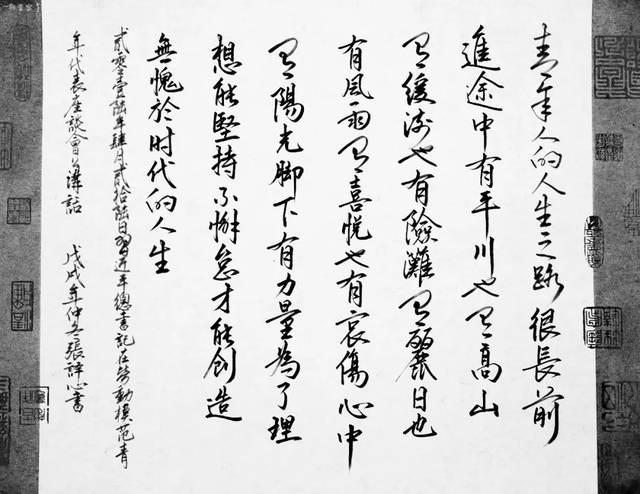 青年人的人生之路很長前
進途中有平川也有高山
有缓流也有險灘有麗日也
有風雨有喜悦也有哀傷心中
有陽光脚下有力量為了理
想能堅持不懈怠才能創造
無愧於时代的人生
貳零壹陸年肆月貳拾陸日習近平總書記在勞動模范青
年代表座談會上講話 戊戌年仲冬張心書